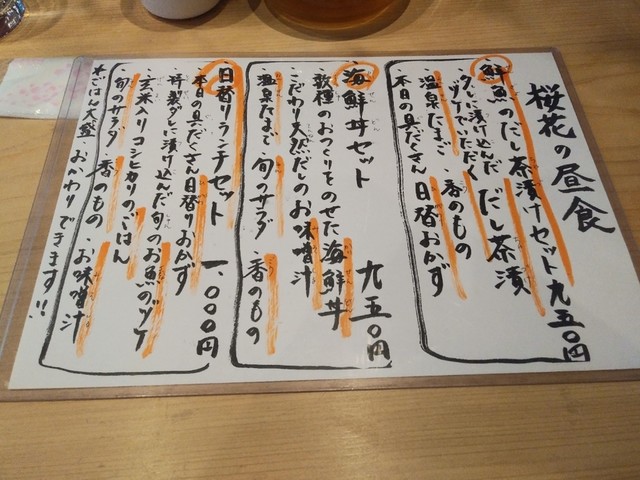 桜花の昼食
鮮魚のだし茶漬けセット九五〇円
・タレに漬け込んだ だし茶漬
ヅケでいただく
・温泉たまご ・香のもの
・本日の具だくさん日替おかず
・海鮮丼セット 九五〇円
・数種のおつくりをのせた海鮮丼
・こだわり天然だしのお味噌汁
・温泉たまご ・旬のサラダ ・香のもの
日替りランチセット 一、〇〇〇円
・本日の具だくさん日替りおかず
・特製ダレに漬け込んだ旬のお魚のヅケ
・玄米入りコシヒカリのごはん
・旬のサラダ ・香のもの ・お味噌汁
※ごはん大盛、おかわりできます!!